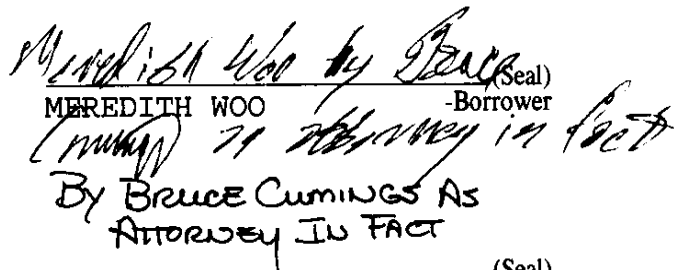 Meredith Woo by Bruce (Seal)
MEREDITH WOO -Borrower
Cumings as attorney in fact
By BRUCE CUMINGS AS
ATTORNEY IN FACT
(Seal)